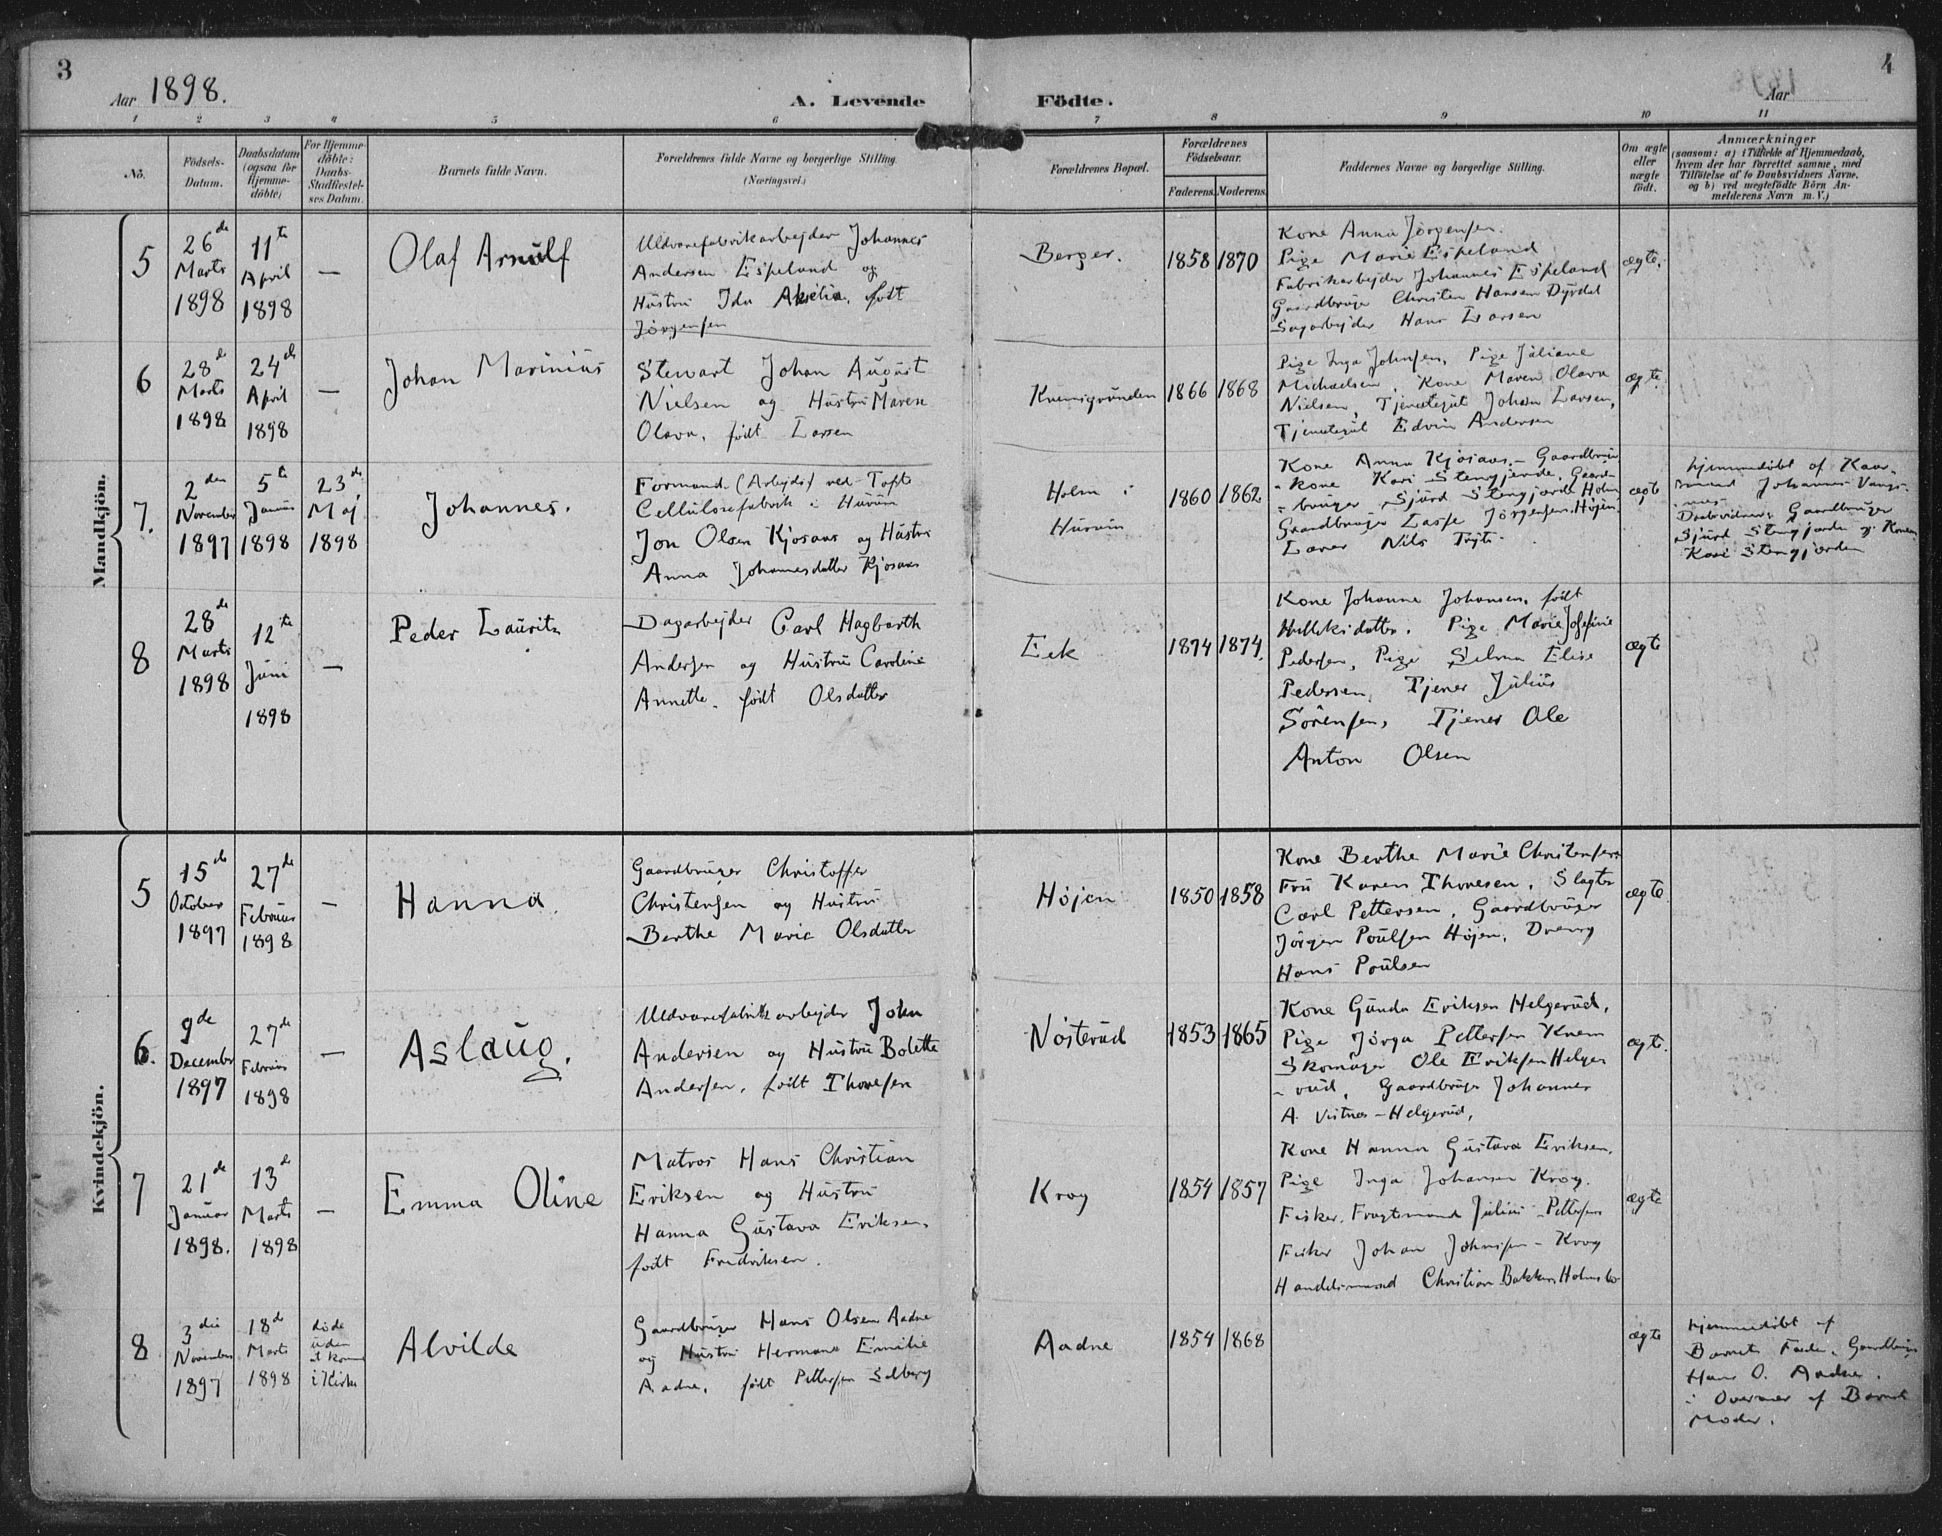 3
Aar 1898.
A. Levende Födte.
Aar
4
1 2 3 4 5 6 7 8 9 10 11
No.
Födsels-
Datum.
Daabsdatum
(ogsaa for
Hjemme-
döbte)
For Hjemme-
döbte:
Daabs-
Stadfæstel-
ses Datum.
Barnets fulde Navn.
Forældrenes fulde Navne og borgerlige Stilling.
(Næringsvei.)
Forældrenes Bopæl.
Forældrenes
Födselsaar.
Faderens. Moderens.
Faddernes Navne og borgerlige Stilling.
Om ægte
eller
uægte
födt.
Anmærkninger
(saasom: a) i Tilfælde af Hjemmedaab,
hvem der har forrettet samme, med
Tilföielse af to Daabsvidners Navne,
og b) ved uægtefödte Börn An-
melderens Navn m. V.)
Mandkjön.
5
26de
Marts
1898
11te
April
1898
—
Olaf Arnulf
Uldvarefabrikarbejder Johannes
Andersen Espeland og
Hustru Ida Akselia, født
Jørgensen
Berger.
1858 1870
Kone Anna Jørgensen.
Pige Marie Espeland
Fabrikarbejder Johannes Espeland
Gaardbruger Christen Hansen Dyrdal
Sagarbejder Hans Larsen
ægte.
6
28de
Marts
1898
24de
April
1898
—
Johan Marinius
Stewart Johan August
Nielsen og Hustru Maren
Olava, født Larsen
1866 1868
Pige Inga Johnsen, Pige Juliane
Michaelsen, Kone Maren Olava
Nielsen, Tjenstegut Johan Larsen,
Tjenstegut Edvin Andersen
ægte.
7.
2den
November
1897
5te
Januar
1898
23de
Maj
1898
Johannes.
Formand (Arbejds) ved Tofte
Cellulosefabrik i Hurum
Jon Olsen Kjosaas og Hustru
Anna Johannesdatter Kjosaas
Holm i
Hurum
1860 1862
Kone Anna Kjosaas, - Gaardbruger
- kone Kari Stengjerde, Gaard-
- bruger Sjurd Stengjorde Holm
Gaardbruger Lasse Jørgensen Højen
Larer Nils
ægte
hjemmedøbt af
Johannes
Daabsvidner Gaardbruger
Sjurd Stengjorde og Konen
Kari Stengjorden
8
28de
Marts
1898
12te
Juni
1898
—
Peder Lauritz
Dagarbejder Carl Hagbarth
Andersen og Hustru Caroline
Annette. født Olsdatter
Eek
1874 1874.
Kone Johanne Johansen, født
Pige Marie Josefine
Pedersen, Pige Selma Elise
Pedersen, Tjener Julius
Sörensen, Tjener Ole
Anton Olsen
ægte
Kvindekjön.
5
15de
October
1897
27de
Februar
1898
—
Hanna.
Gaardbruger Christoffer
Christensen og Hustru
Berthe Marie Olsdatter
Højen
1850 1858
Kone Berthe Marie Christensen
Fru Karen Thoresen, Slagter
Carl Pettersen, Gaardbruger
Jörgen Poulsen Höjen, Dreng
Hans Poulsen
ægte
6.
9de
December
1897
27de
Februar
1898
—
Aslaug.
Uldvarefabrikarbejder John
Andersen og Hustru Bolette
Andersen, født Thoresen
Nøsterud
1853 1865
Kone Gunda Eriksen Helgerud,
Pige Jörga Pettersen Knem
Skomager Ole Eriksen Helge-
- rud, Gaardbruger Johannes
A. Vistnes - Helgerud,
ægte.
7
21de
Januar
1898.
13de
Marts
1898
—
Emma Oline
Matros Hans Christian
Eriksen og Hustru
Hanna Gustava Eriksen,
født Fredriksen.
Krog
1854 1857
Kone Hanna Gustava Eriksen,
Pige Inga Johansen Krog.
Fisker, Fragtemand Julius Pettersen
Fisker Johan Johnsen - Krog
Handelsmand Christian Bakken Holmsbo
ægte
8
3die
November
1897
18de
Marts
1898
døde
uden
at komme
i Kirke
Alvilde
Gaardbruger Hans Olsen Aadne
og Hustru Hermana Emilie
Aadne, født Pettersen Solberg
Aadne
1854 1868
ægte
hjemmedøbt af
Barnets Fader, Gaardbruger
Hans O. Aadne.
i Overvær af Barnets
Moder.